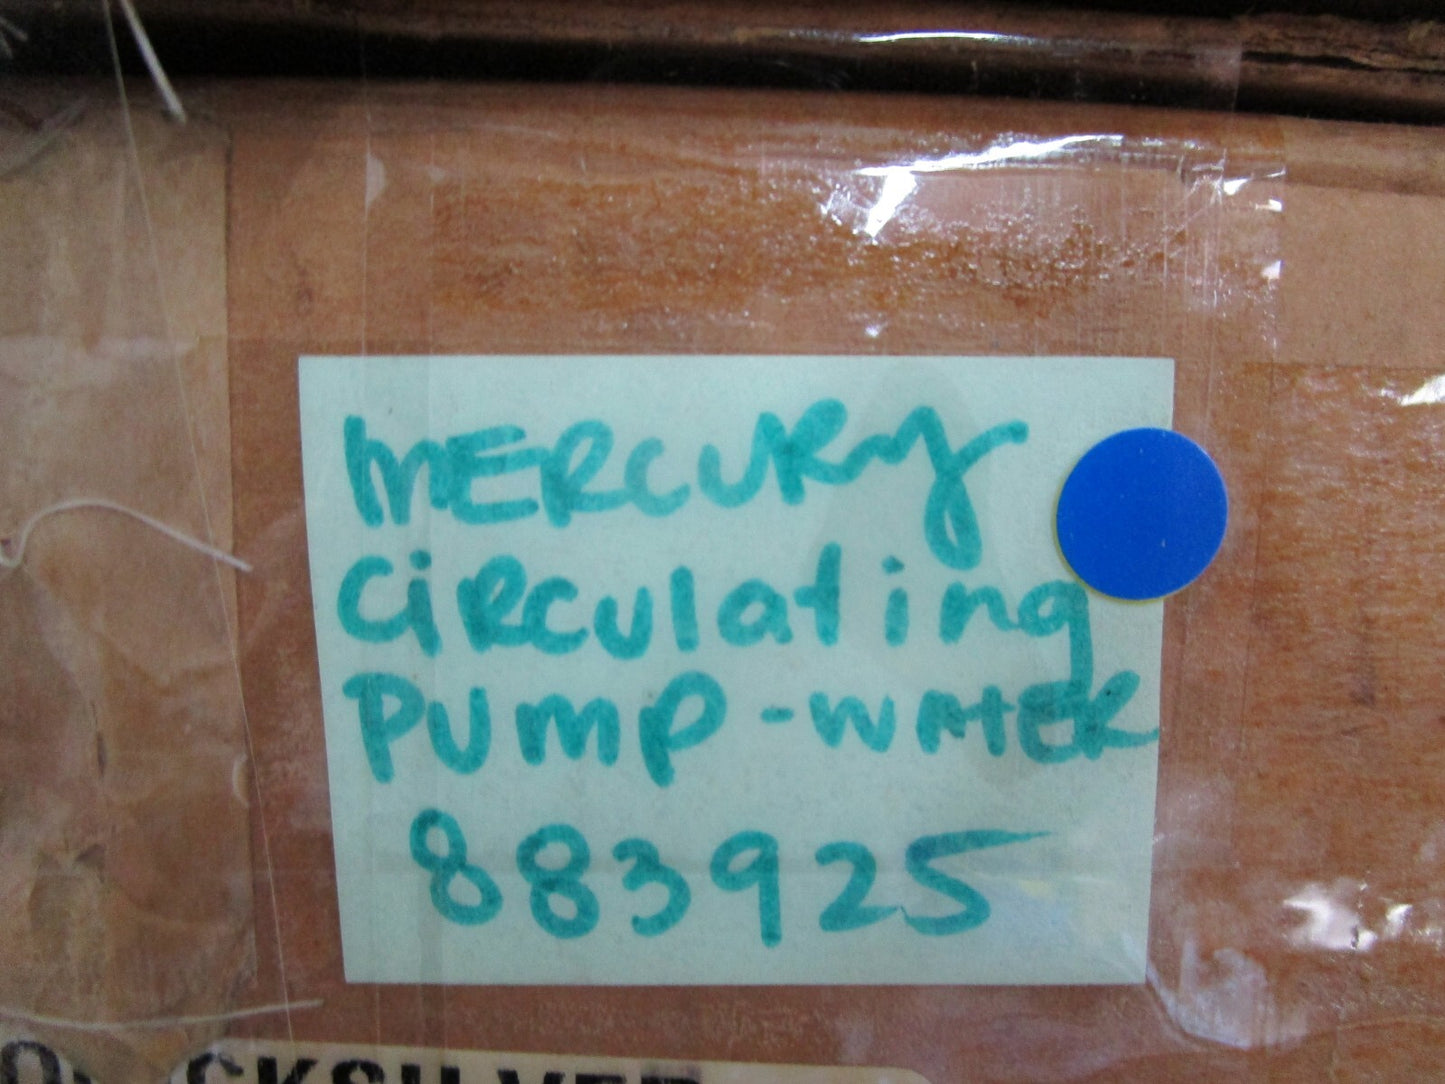 MERCURY
CiRCulating
PUMP-WATER
883925
QUICKSILVER